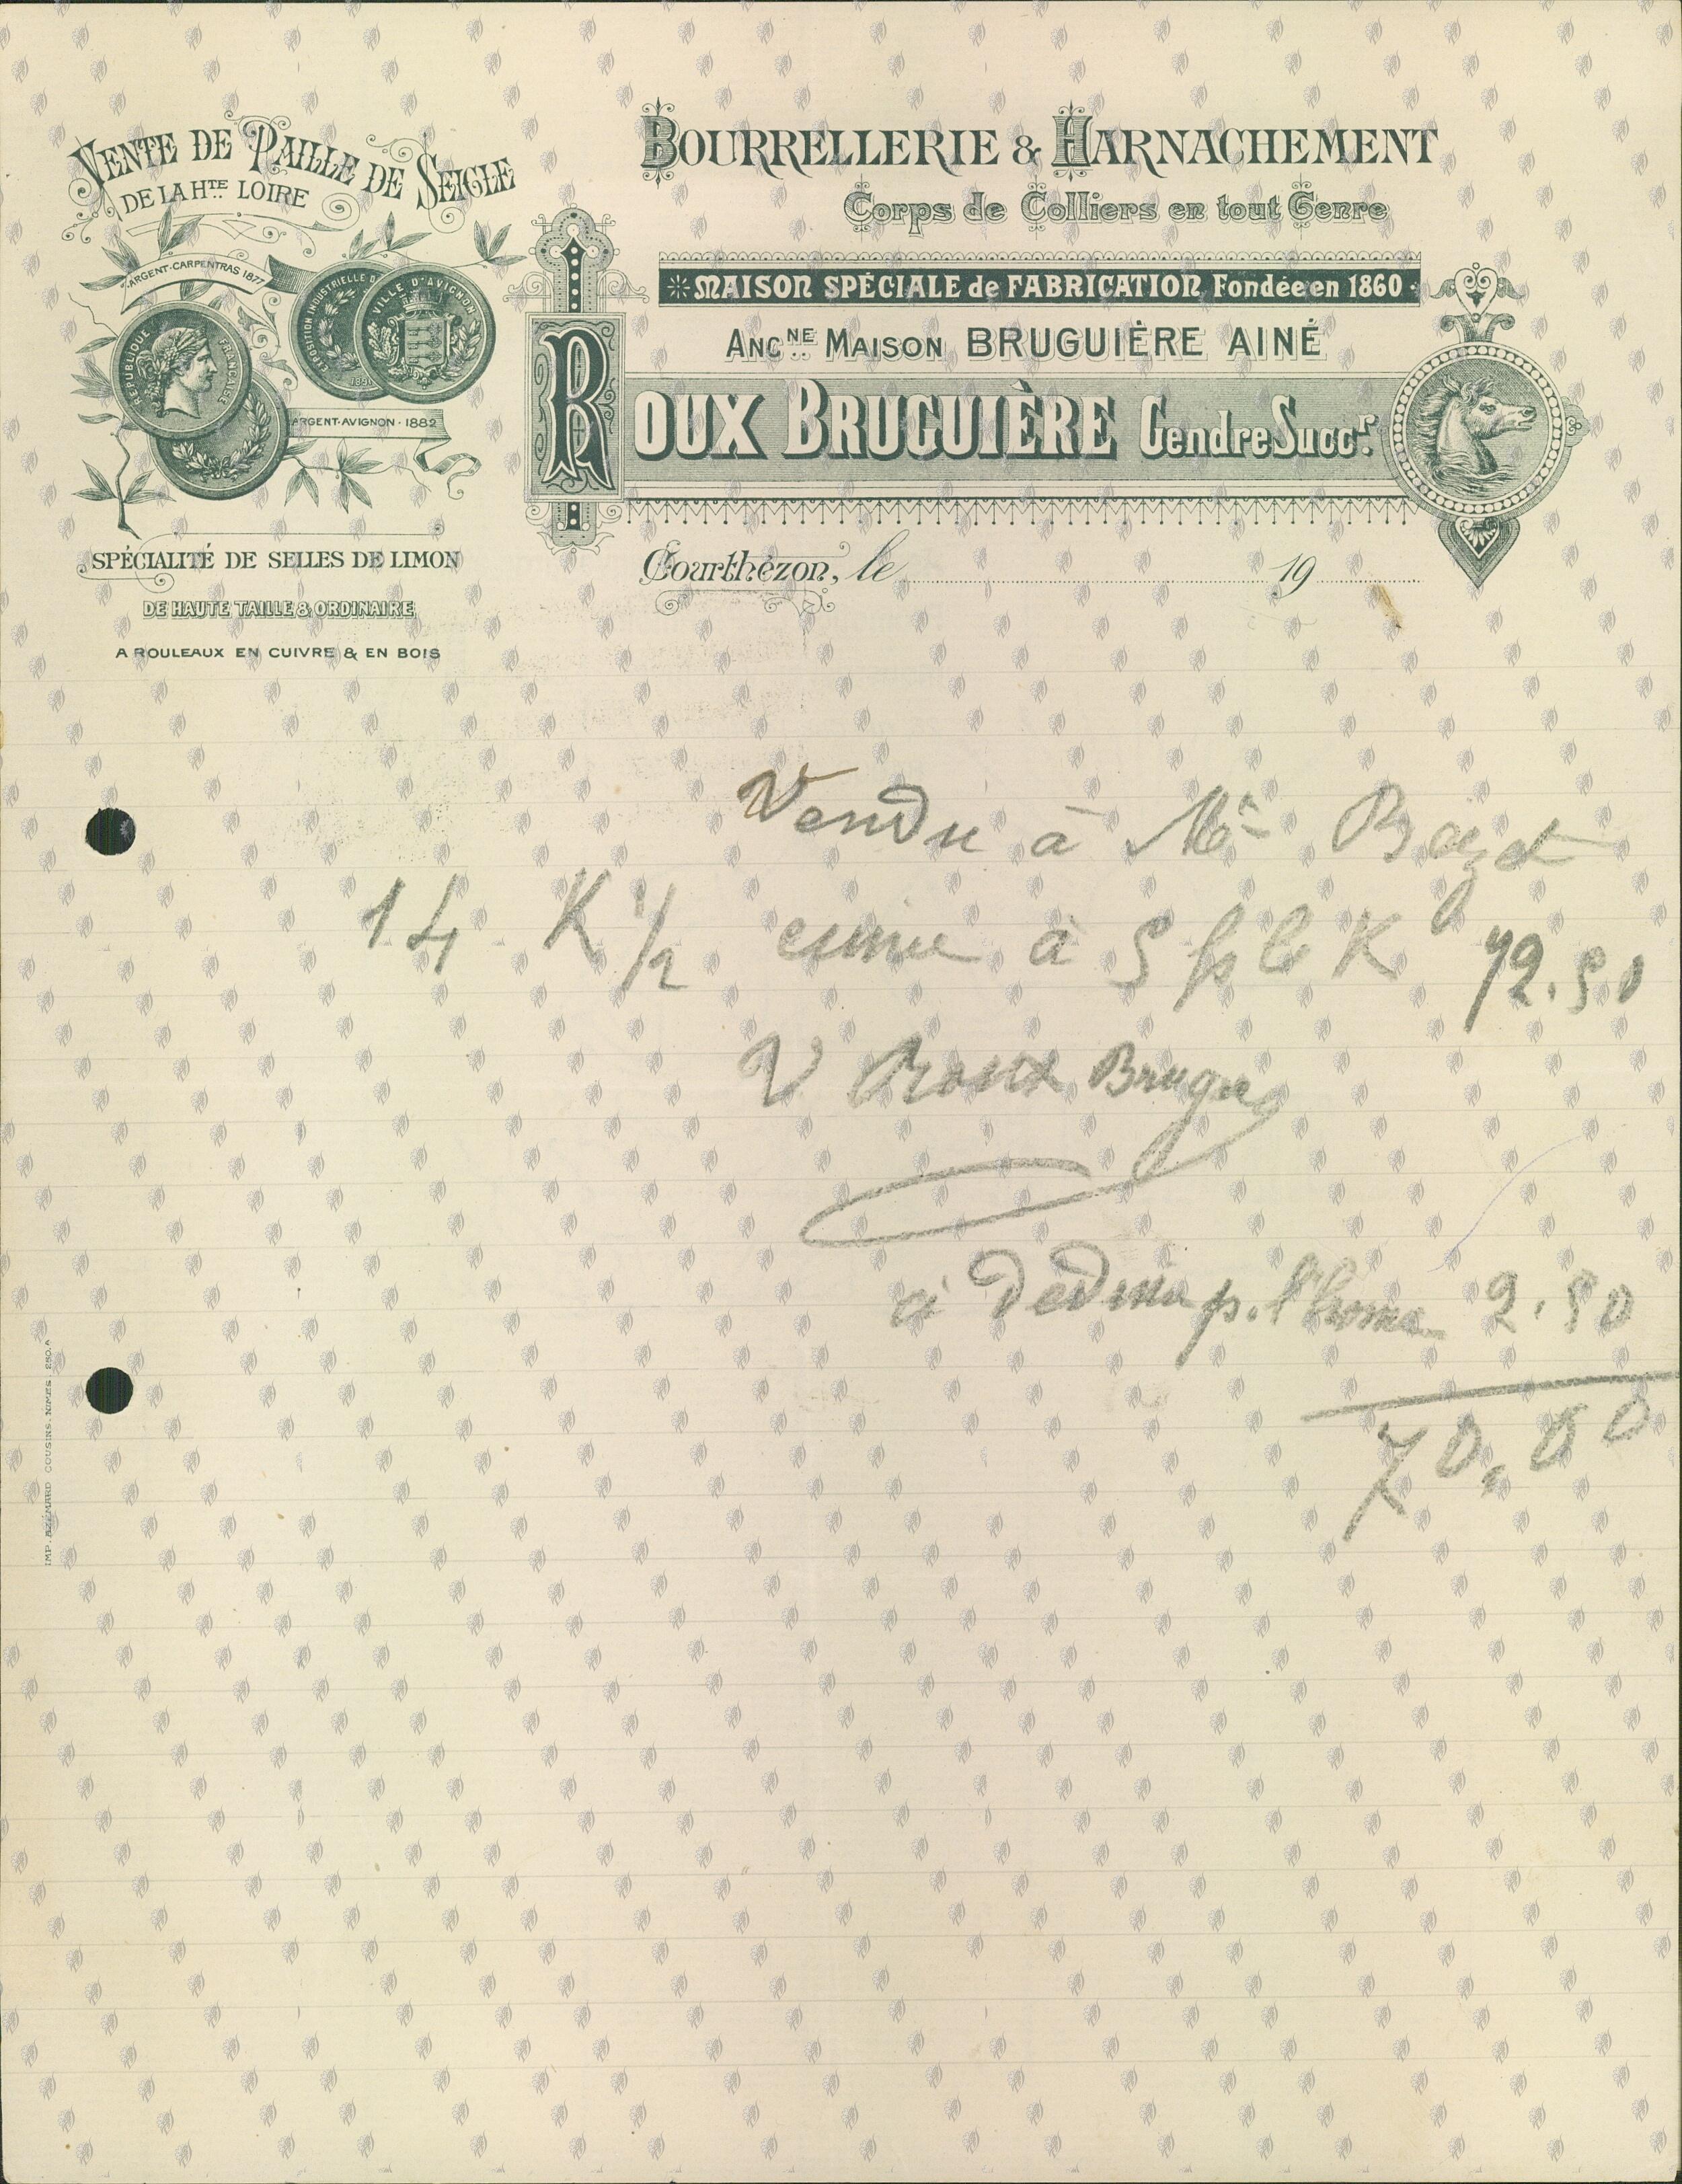 VENTE DE PAILLE DE SEIGLE
DE LA HTE LOIRE
ARGENT·CARPENTRAS 1877
RÉPUBLIQUE FRANÇAISE
EXPOSITION INDUSTRIELLE D
1891
VILLE D'AVIGNON
ARGENT·AVIGNON·1882
SPÉCIALITÉ DE SELLES DE LIMON
DE HAUTE TAILLE & ORDINAIRE
A ROULEAUX EN CUIVRE & EN BOIS
BOURRELLERIE & HARNACHEMENT
Corps de Colliers en tout Genre
MAISON SPÉCIALE de FABRICATION Fondée en 1860
ANCNE MAISON BRUGUIÈRE AINÉ
ROUX BRUGUIÈRE Gendre Succr.
Courthézon, le 19
Vendu à Mr
14 K 1/2 à 5 f le K 72.50
V Roux
à p. 2.50
70,00
IMP. AZÉMARD COUSINS. NIMES. 250.A